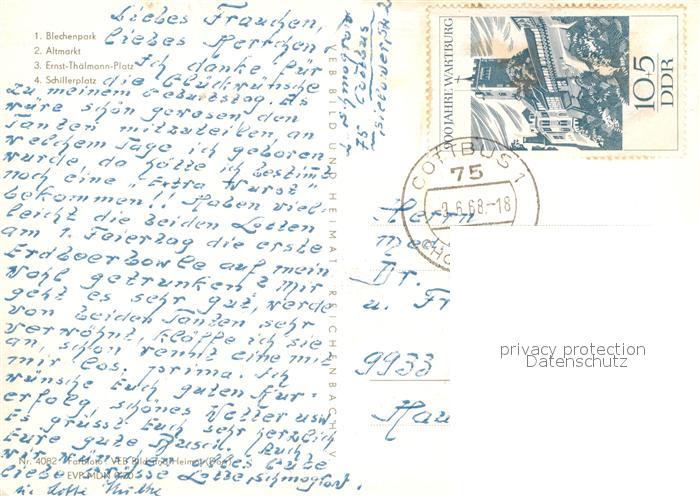 1. Blechenpark
2. Altmarkt
3. Ernst-Thälmann-Platz
4. Schillerplatz
Liebes Frauchen,
liebes Herrchen
Ich danke für
die Glückwünsche
zu meinem Geburtstag. Es
wäre schön gewesen den
Tanten mitzuteilen, an
welchem Tage ich geboren
wurde, da hätte ich bestimmt
noch eine "Extra Wurst"
bekommen!! Haben viel-
leicht die beiden Lotten
am 1. Feiertag die erste
Erdbeerbowle auf mein
Wohl getrunken? Mir
geht es sehr gut, werde
von beiden Tanten sehr
verwöhnt, kläffe ich sie
an, schon rennt eine mit
mir los. prima. Ich
wünsche Euch guten Kur-
erfolg, schönes Wetter usw.
Es grüsst Euch sehr herzlich
Eure gute Auch
wir wünschen alles Gute
liebe Grüsse Lotte Schmogrow.
u. Lotte
Nr. 4082 Farbfoto: VEB Bild und Heimat
EVP MDN 0,20
VEB BILD UND HEIMAT REICHENBACH I. V.
Schmogrow
75 Cottbus
900 JAHRE WARTBURG
10+5
DDR
COTTBUS 1
75
6.68.-18
Herrn
med
Dr.
u. Fr
9933
privacy protection
Datenschutz